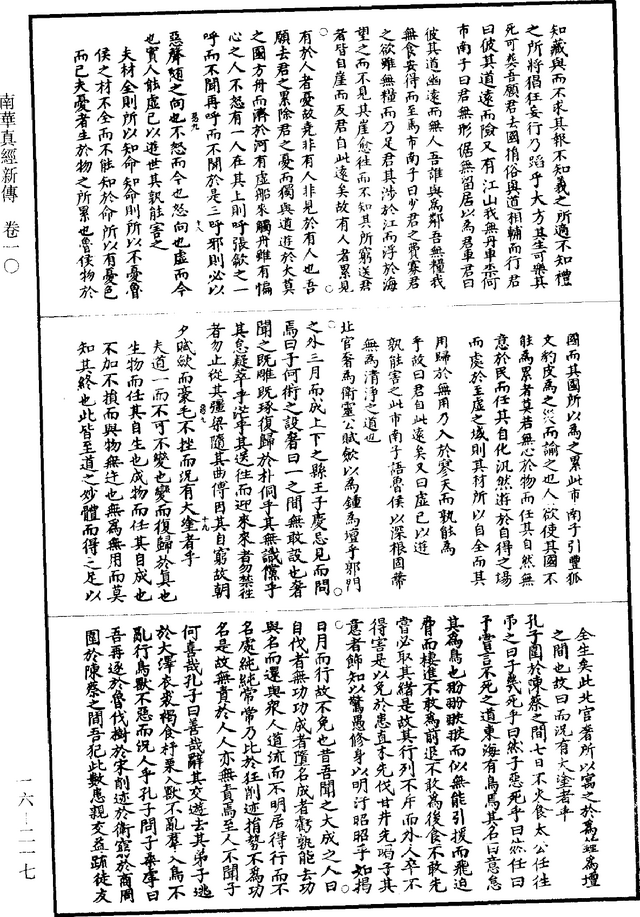 知藏與而不求其報不知義之所適不知禮
之所將猖狂妄行乃蹈乎大方其生可樂其
死可葬吾願君去國捐俗與道相輔而行君
曰彼其道遠而險又有江山我無舟車柰何
市南子曰君無形倨無留居以為君車君曰
彼其道幽遠而無人吾誰與為鄰吾無糧我
無食安得而至焉市南子曰少君之費寡君
之欲雖無糧而乃足君其涉於江而浮於海
望之而不見其崖愈往而不知其所窮送君
者皆自崖而反君自此遠矣故有人者累見
有於人者憂故堯非有人非見於有人也吾
願去君之累除君之憂而獨與道遊於大莫
之國方舟而濟於河有虛船來觸舟雖有惼
心之人不怒有一人在其上則呼張歙之一
呼而不聞再呼而不聞於是三呼邪則必以
惡聲隨之向也不怒而今也怒向也虛而今
也實人能虛己以遊世其孰能害之
夫材全則所以知命知命則所以不憂魯
侯之材不全而不能知於命所以有憂色
而已夫憂者生於物之所累也魯侯物於
國而其國所以為之累此市南子引豐狐
文豹皮為之災而諭之也人欲使其國不
能為累者莫若無心於物而任其自然無
意於民而任其自化汎然遊於自得之場
而處於至虛之域則其材所以自全而其
用歸於無用乃入於寥天而孰能為
乎故曰君自此遠矣又曰虛己以遊
孰能害之此市南子語魯侯以深根固蒂
無為清淨之道也
北宮奢為衛靈公賦斂以為鐘為壇乎郭門
之外三月而成上下之縣王子慶忌見而問
焉曰子何術之設奢曰一之間無敢設也奢
聞之既雕既琢復歸於朴侗乎其無識儻乎
其怠疑萃乎芒乎其送往而迎來來者勿禁往
者勿止從其彊梁隨其曲傅因其自窮故朝
夕賦斂而毫毛不挫而況有大塗者乎
夫道一而不可不變也變而復歸於真也
生物而任其自生也成物而任其自成也
不加不損而與物無迕也無為無用而莫
知其終也此皆至道之妙體而得之足以
全生矣此北宮奢所以寓之於為鐘為壇
之間也故曰而況有大塗者乎
孔子圍於陳蔡之間七日不火食太公任往
弔之曰子幾死乎曰然子惡死乎曰然任曰
予嘗言不死之道東海有鳥焉其名曰意怠
其為鳥也翂翂翐翐而似無能引援而飛迫
脅而棲進不敢為前退不敢為後食不敢先
嘗必取其緒是故其行列不斥而外人卒不
得害是以免於患直木先伐甘井先竭子其
意者飾知以驚愚修身以明汙昭昭乎如揭
日月而行故不免也昔吾聞之大成之人曰
自伐者無功功成者墮名成者虧孰能去功
與名而還與眾人道流而不明居得行而不
名處純純常常乃比於狂削迹捐勢不為功
名是故無責於人人亦無責焉至人不聞子
何喜哉孔子曰善哉辭其交遊去其弟子逃
於大澤衣裘褐食杼栗入獸不亂羣入鳥不
亂行鳥獸不惡而況人乎孔子問子桑雽曰
吾再逐於魯伐樹於宋削迹於衛窮於商周
圍於陳蔡之間吾犯此數患親交益疏徒友
南華真經新傳 卷一〇
一六—二一七